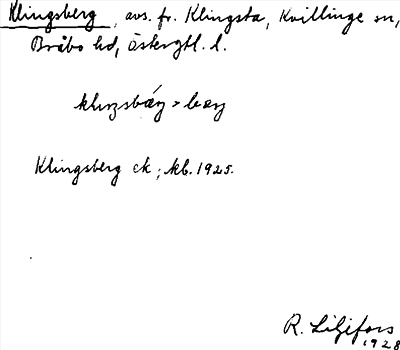 Klingsberg, avs. fr. Klingsta, Kvillinge sn,
Bråbo hd, Östergtl. l.
Klingsberg ck; kb. 1925.
R. Liljefors
1928